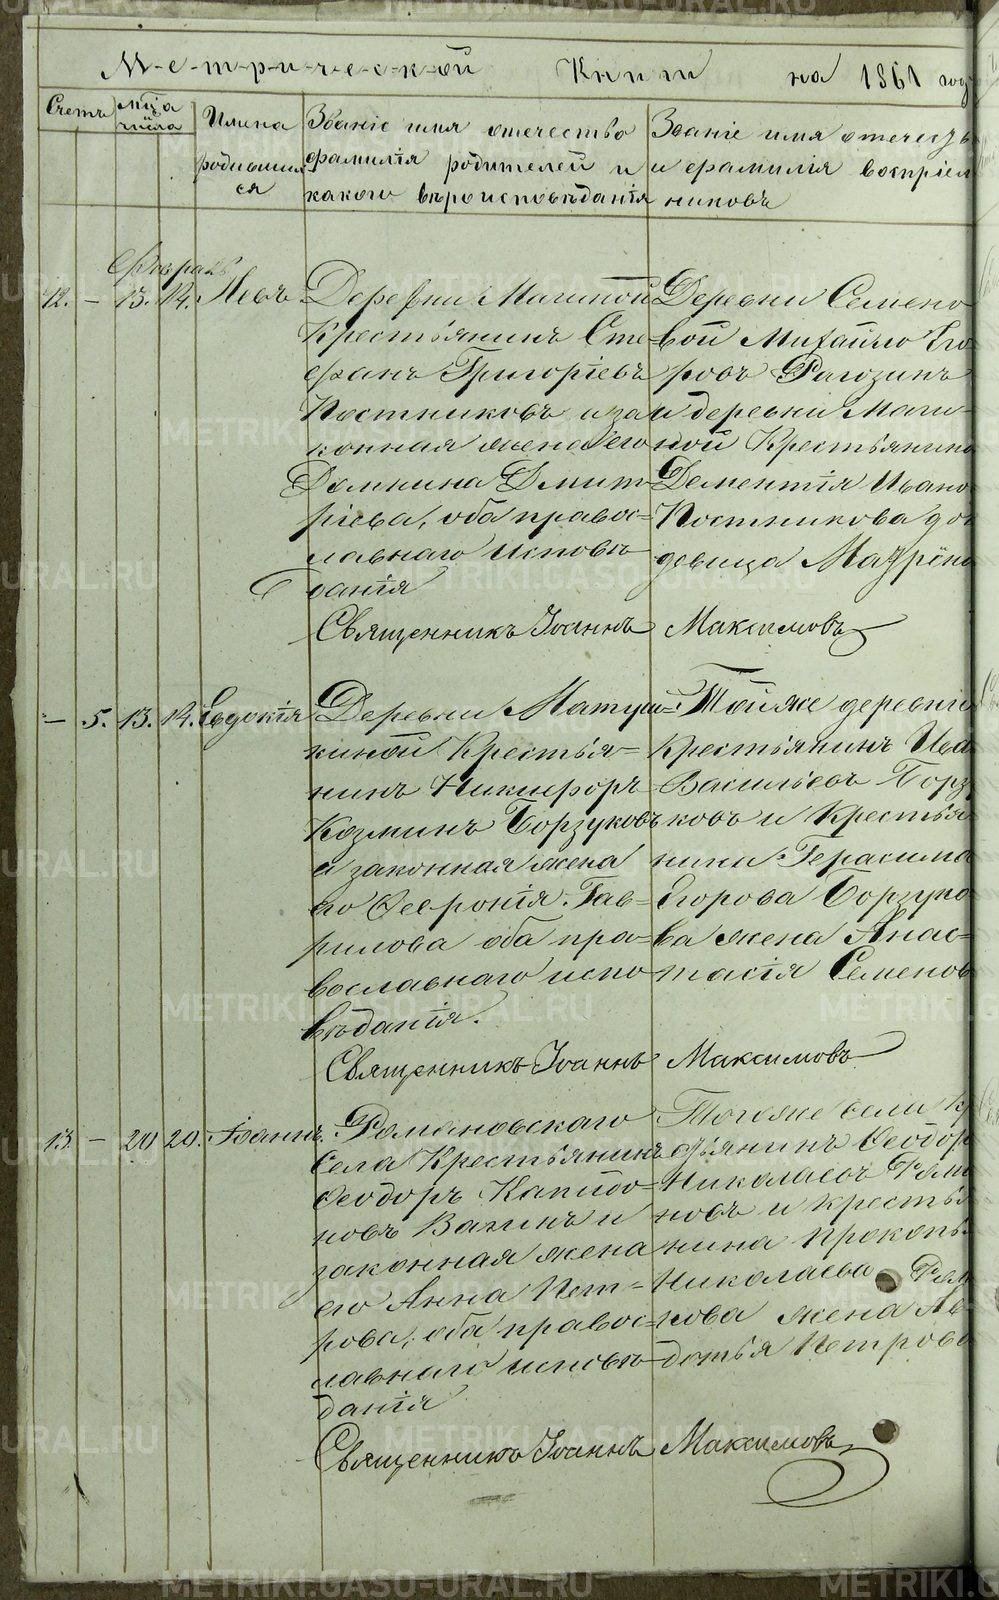 Метрической Книги на 1861 год
Счетъ Мца числа Имена родившихся
Званіе имя отечество фамилія родителей и какого вѣроисповѣданія
Званіе имя отечеств и фамилія воспріем никовъ
Февраль
12. – 13. 14. Левъ
Деревни Мачиной
Крестьянинъ Сте
фанъ Григорьевъ
Постниковъ и за
конная жена его
Домнина Дмит
ріева, оба правос=
лавнаго исповѣ
данія
Деревни Семено
вой Михайло Его
ровъ Рагозинъ
и деревни Мачи-
ной Крестьянина
Дементія Ивано
Постникова до
девица Мавра
Священникъ Іоаннъ Максимовъ
– 5. 13. 14. Евдокія
Деревни Матуш=
киной Крестья=
нинъ Никифоръ
Козминъ Борзуковъ
и законная жена
его Феѳронія Гав=
рилова оба пра=
вославнаго испо
вѣданія.
Той же деревни
крестьянинъ Ива
Васильевъ Борзу
ковъ и Крестья
нина Герасима
Егорова Борзуко
ва жена Анас=
тасія Семенов
Священникъ Іоаннъ Максимовъ
13 – 20 20. Іоаннъ.
Романовскаго
Села Крестьянинъ
Ѳеодоръ Капито=
новъ Вагинъ и
законная жена
его Анна Пет=
рова, оба правос=
лавнаго исповѣ
данія
Тогоже села кр
стьянинъ Ѳеодор
Николаевъ
новъ и крестья
нина Прокопья
Николаева
нова жена Ав
дотья Петрова
Священникъ Іоаннъ Максимовъ
METRIKI.GASO-URAL.RU